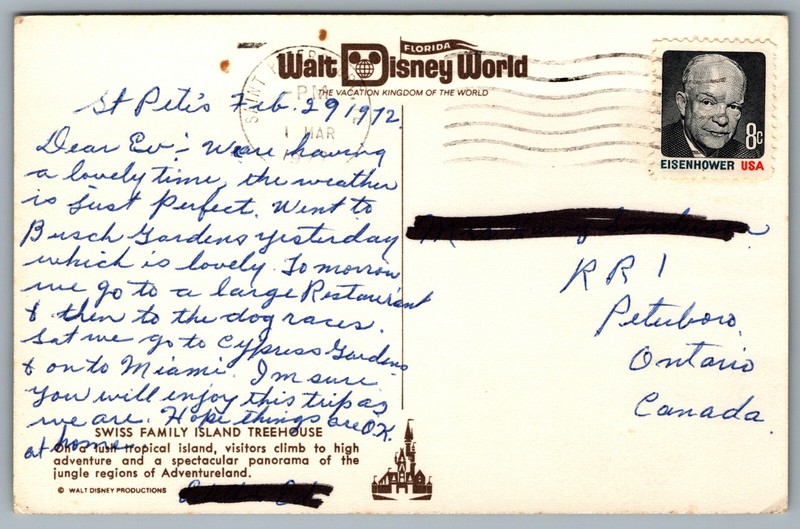 FLORIDA
Walt Disney World
THE VACATION KINGDOM OF THE WORLD
SAINT PETER
PM
1 MAR
8c
EISENHOWER USA
St Pete's Feb. 29 1972
Dear Ev: We are having
a lovely time, the weather
is just perfect. Went to
Busch Gardens yesterday
which is lovely. Tomorrow
we go to a large Restaurant
& then to the dog races.
Sat we go to Cypress Gardens
& on to Miami. I'm sure
you will enjoy this trip as
we are. Hope things are O.K.
at home.
RR 1
Peterboro,
Ontario
Canada.
SWISS FAMILY ISLAND TREEHOUSE
On a lush tropical island, visitors climb to high
adventure and a spectacular panorama of the
jungle regions of Adventureland.
© WALT DISNEY PRODUCTIONS